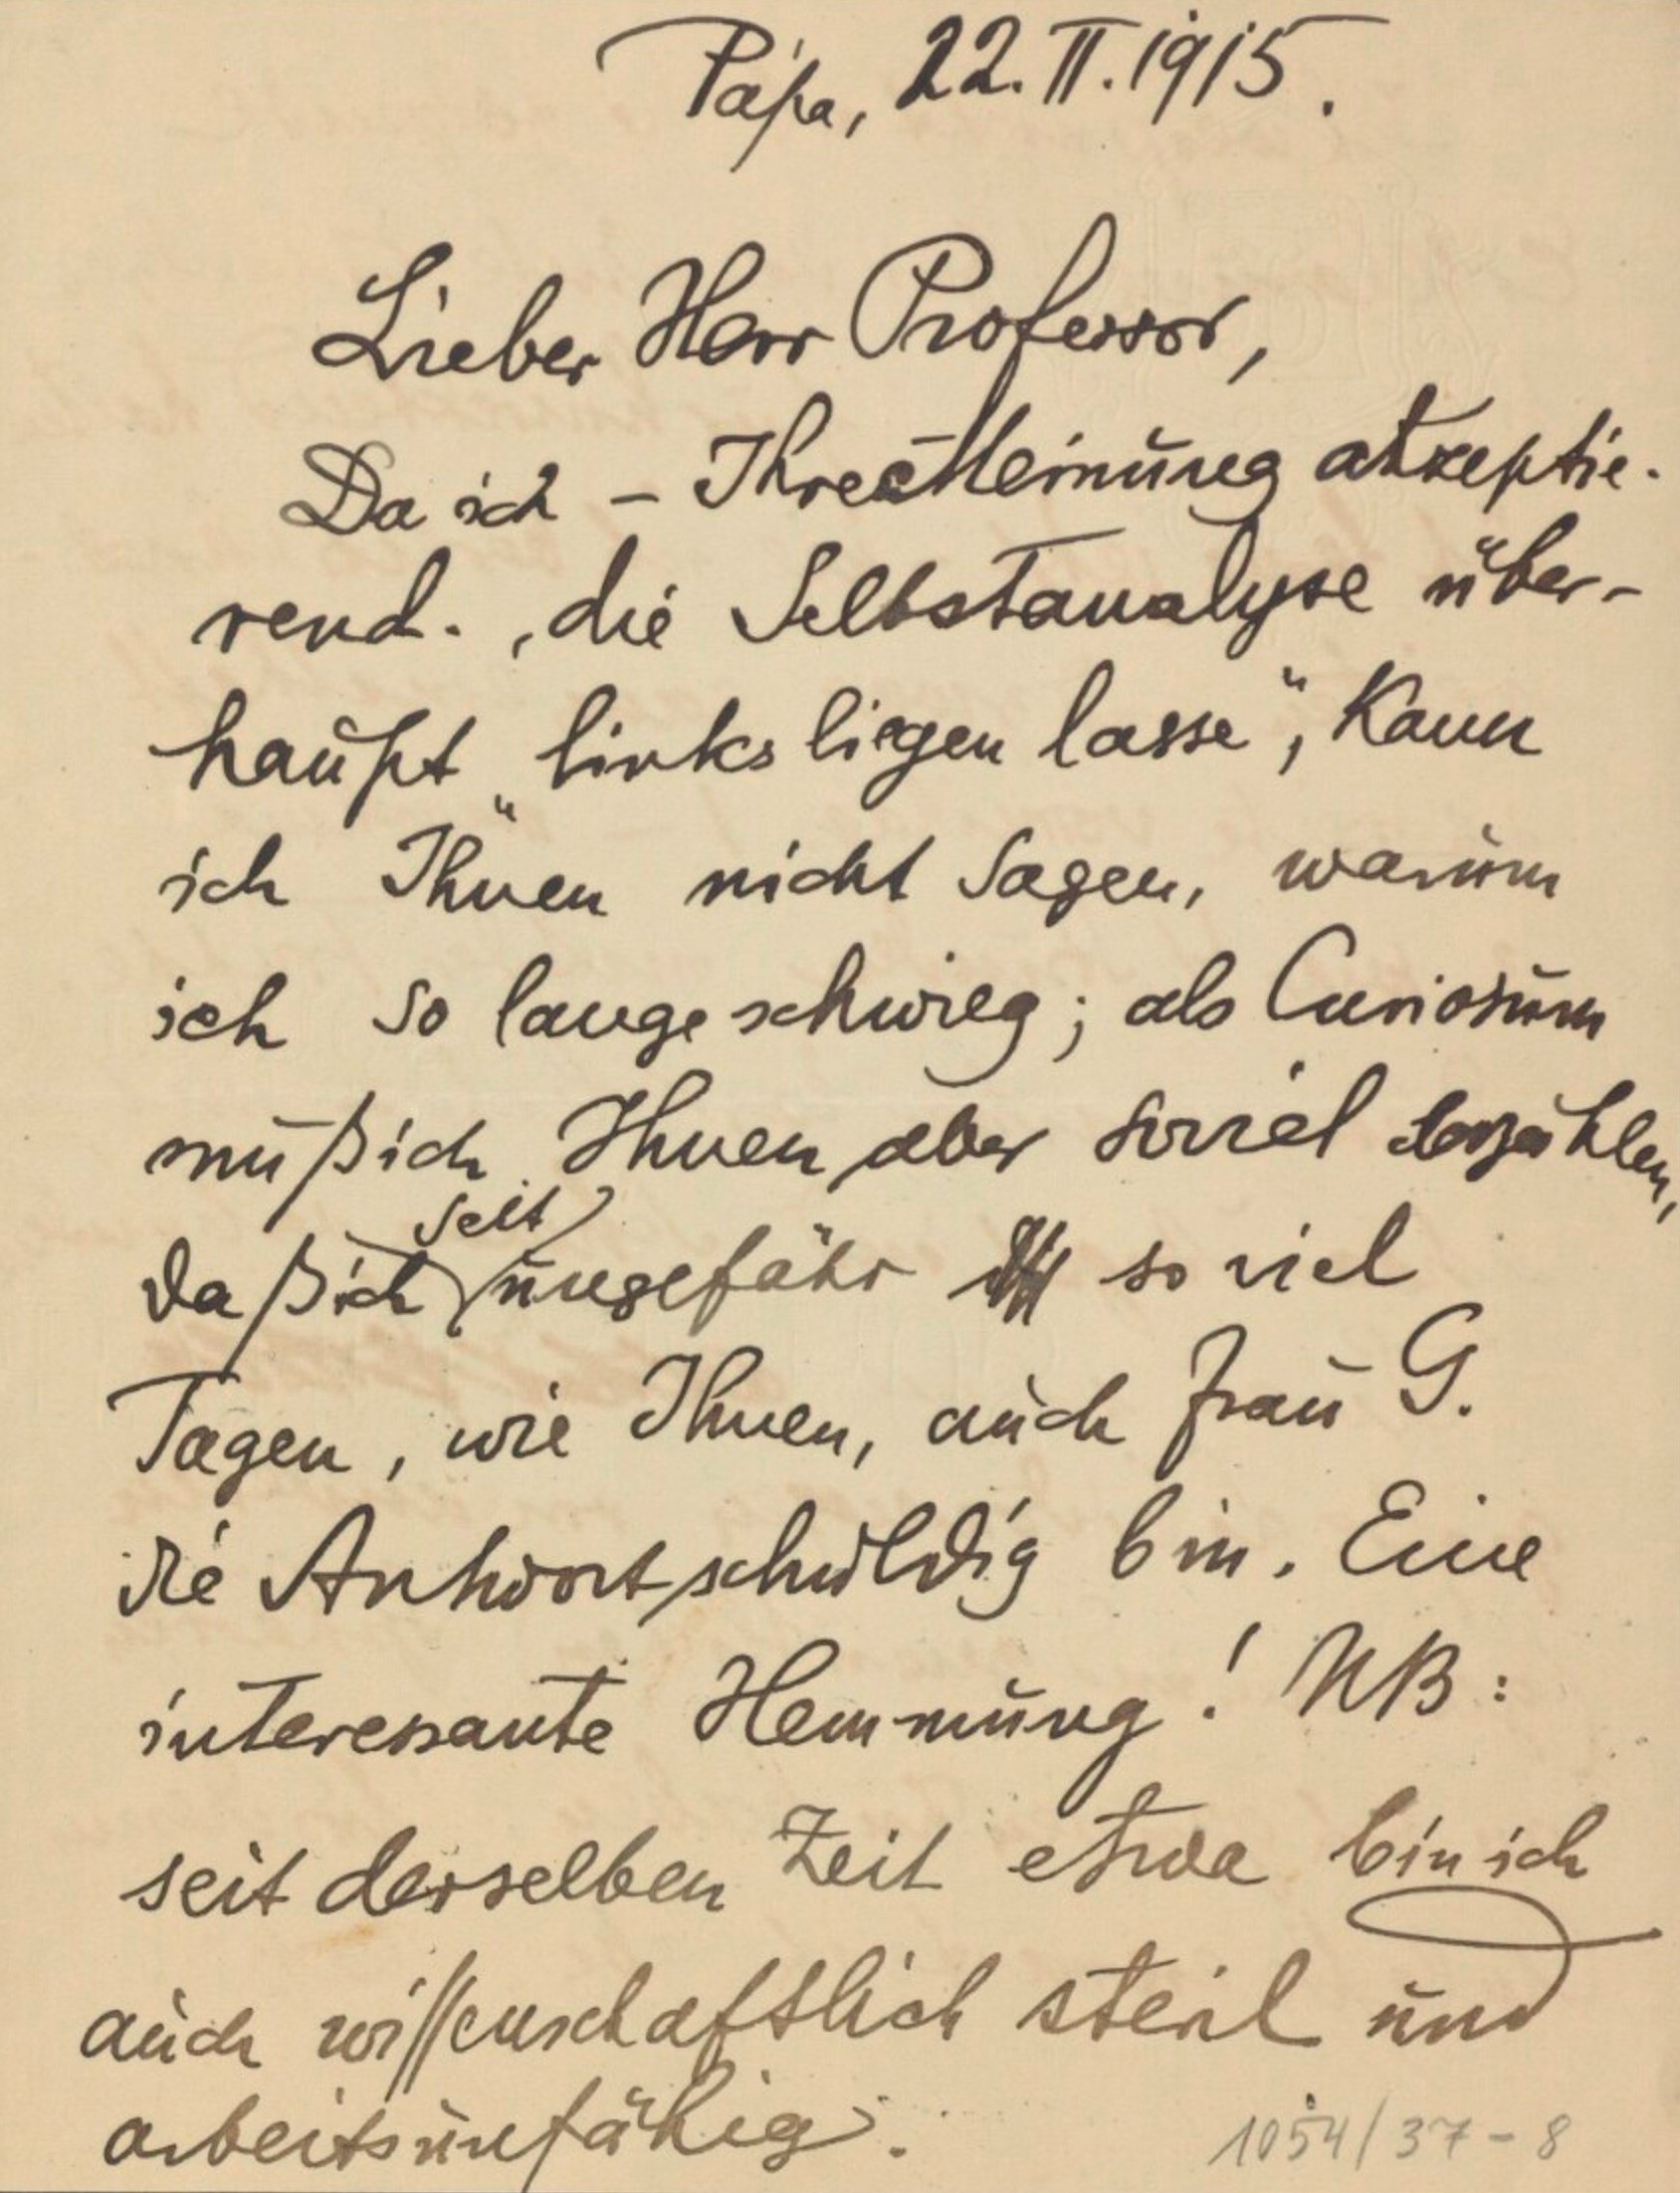 Pápa, 22. II. 1915.
Lieber Herr Professor,
Da ich – Ihre Meinung akzeptie-
rend -, die Selbstanalyse über-
haupt „links liegen lasse“, kann
ich Ihnen nicht sagen, warum
ich so lange schwieg; als Curiosum
muß ich Ihnen aber soviel erzählen,
seit
daß ich ungefähr so viel
Tagen, wie Ihnen, auch Frau G.
die Antwort schuldig bin. Eine
interessante Hemmung! NB:
seit derselben Zeit etwa bin ich
auch wissenschaftlich steril und
arbeitsunfähig.
1054/37-8